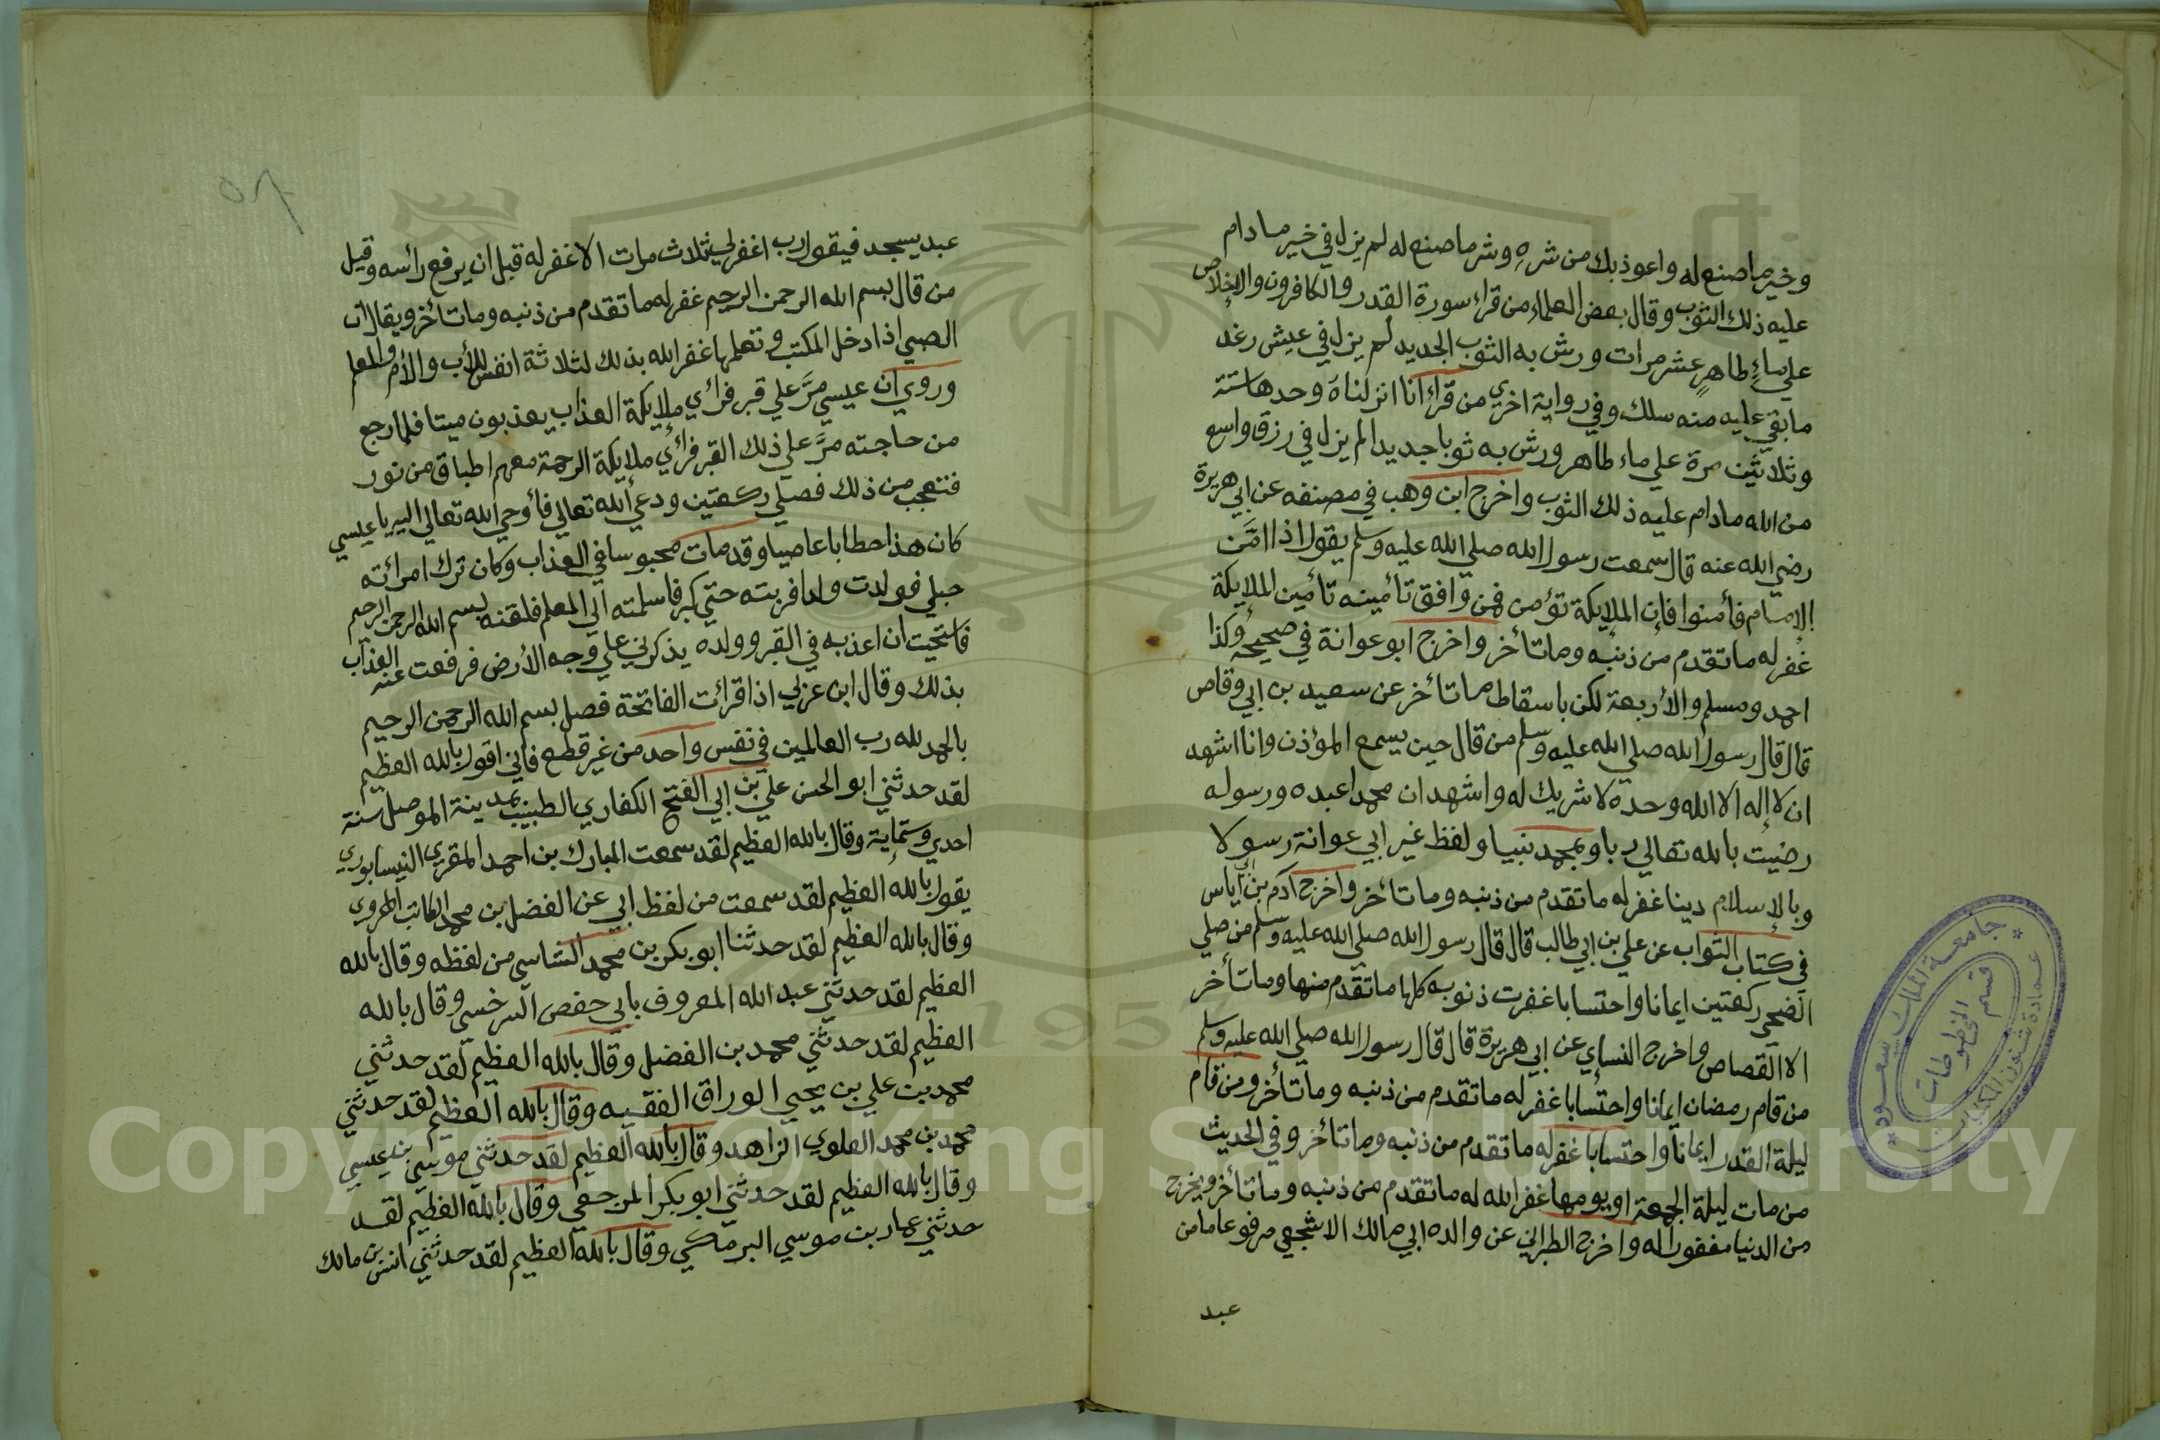 وخير ما صنع له واعوذ بك من شره وشر ما صنع له لم يزل في خير ما دام
عليه ذلك الثوب وقال بعض العلماء من قراء سورة القدر والكافرون والاخلاص
علي ماءٍ طاهرٍ عشر مرات ورش به الثوب الجديد لم يزل في عيش رغد
ما بقي عليه منه سلك وفي رواية اخري من قراء انا انزلناه وحدها ستة
وثلاثين مرة علي ماء طاهر ورش به ثوبا جديدا لم يزل في رزق واسع
من الله ما دام عليه ذلك الثوب واخرج ابن وهب في مصنفه عن ابي هريرة
رضي الله عنه قال سمعت رسول الله صلي الله عليه وسلم يقول اذا امَّن
الإمام فأمنوا فإن الملايكة تؤمن فمن وافق تأمينه تأمين الملايكة
غفر له ما تقدم من ذنبه وما تأخر واخرج ابو عوانة في صحيحه وكذا
احمد ومسلم والأربعة لكن باسقاط ما تأخر عن سعيد بن ابي وقاص
قال قال رسول الله صلي الله عليه وسلم من قال حين يسمع المؤذن وانا اشهد
ان لا إله الا الله وحده لا شريك له واشهد ان محمدا عبده ورسوله
رضيت بالله تعالي ربا وبمحمد نبيا ولفظ غير ابي عوانة رسولا
وبالإسلام دينا غفر له ما تقدم من ذنبه وما تأخر واخرج آدم بن أبي أياس
في كتاب الثواب عن علي بن ابي طالب قال قال رسول الله صلي الله عليه وسلم من صلي
الضحي ركعتين ايمانا واحتسابا غفرت ذنوبه كلها ما تقدم منها وما تأخر
الا القصاص واخرج النساي عن ابي هريرة قال قال رسول الله صلي الله عليه وسلم
من قام رمضان ايمانا واحتسابا غفر له ما تقدم من ذنبه وما تأخر ومن قام
ليلة القدر ايمانا واحتسابا غفر له ما تقدم من ذنبه وما تأخر وفي الحديث
من مات ليلة الجمعة او يومها غفر الله له ما تقدم من ذنبه وما تأخر ويخرج
من الدنيا مغفورا له واخرج الطبراني عن والده ابي مالك الاشجعي مرفوعا ما من
عبد
جامعة الملك سعود
قسم المخطوطات
عمادة شئون المكتبات
٥٨
عبد يسجد فيقول رب اغفر لي ثلاث مرات الا غفر له قبل ان يرفع رائسه وقيل
من قال بسم الله الرحمن الرحيم غفر له ما تقدم من ذنبه وما تأخر ويقال ان
الصبي اذا دخل المكتب وتعلمها غفر الله بذلك لثلاثة انفس للأب والأم والمعلم
وروي ان عيسي مرَّ علي قبر فرائي ملايكة العذاب يعذبون ميتا فلما رجع
من حاجته مرَّ علي ذلك القبر فرائي ملايكة الرحمة معهم اطباق من نور
فتعجب من ذلك فصلي ركعتين ودعي الله تعالي فأوحي الله تعالي اليه يا عيسي
كان هذا حطابا عاصيا وقد مات محبوسا في العذاب وكان ترك امرائته
حبلي فولدت ولدا فربته حتي كبر فاسلمته الي المعلم فلقنه بسم الله الرحمن الرحيم
فاستحيت ان اعذبه في القبر وولده يذكرني علي وجه الأرض فرفعت عنه العذاب
بذلك وقال ابن عربي اذا قرائت الفاتحة فصل بسم الله الرحمن الرحيم
بالحمد لله رب العالمين في نفس واحد من غير قطع فاني اقول بالله العظيم
لقد حدثني ابو الحسن علي بن ابي الفتح الكفاري الطبيب بمدينة الموصل سنة
احدي وستماية وقال بالله العظيم لقد سمعت المبارك بن احمد المقري النيسابوري
يقول بالله العظيم لقد سمعت من لفظ ابي عن الفضل بن محمد الكاتب الهروي
وقال بالله العظيم لقد حدثنا ابو بكر بن محمد الشاسي من لفظه وقال بالله
العظيم لقد حدثني عبد الله المعروف بابي حفص السرخسي وقال بالله
العظيم لقد حدثني محمد بن الفضل وقال بالله العظيم لقد حدثني
محمد بن علي بن يحيي الوراق الفقيه وقال بالله العظيم لقد حدثني
محمد بن محمد العلوي الزاهد وقال بالله العظيم لقد حدثني موسي بن عيسي
وقال بالله العظيم لقد حدثني ابو بكر المرجعي وقال بالله العظيم لقد
حدثني عمار بن موسي البرمكي وقال بالله العظيم لقد حدثني انس بن مالك
1957
Copyright © King Saud University